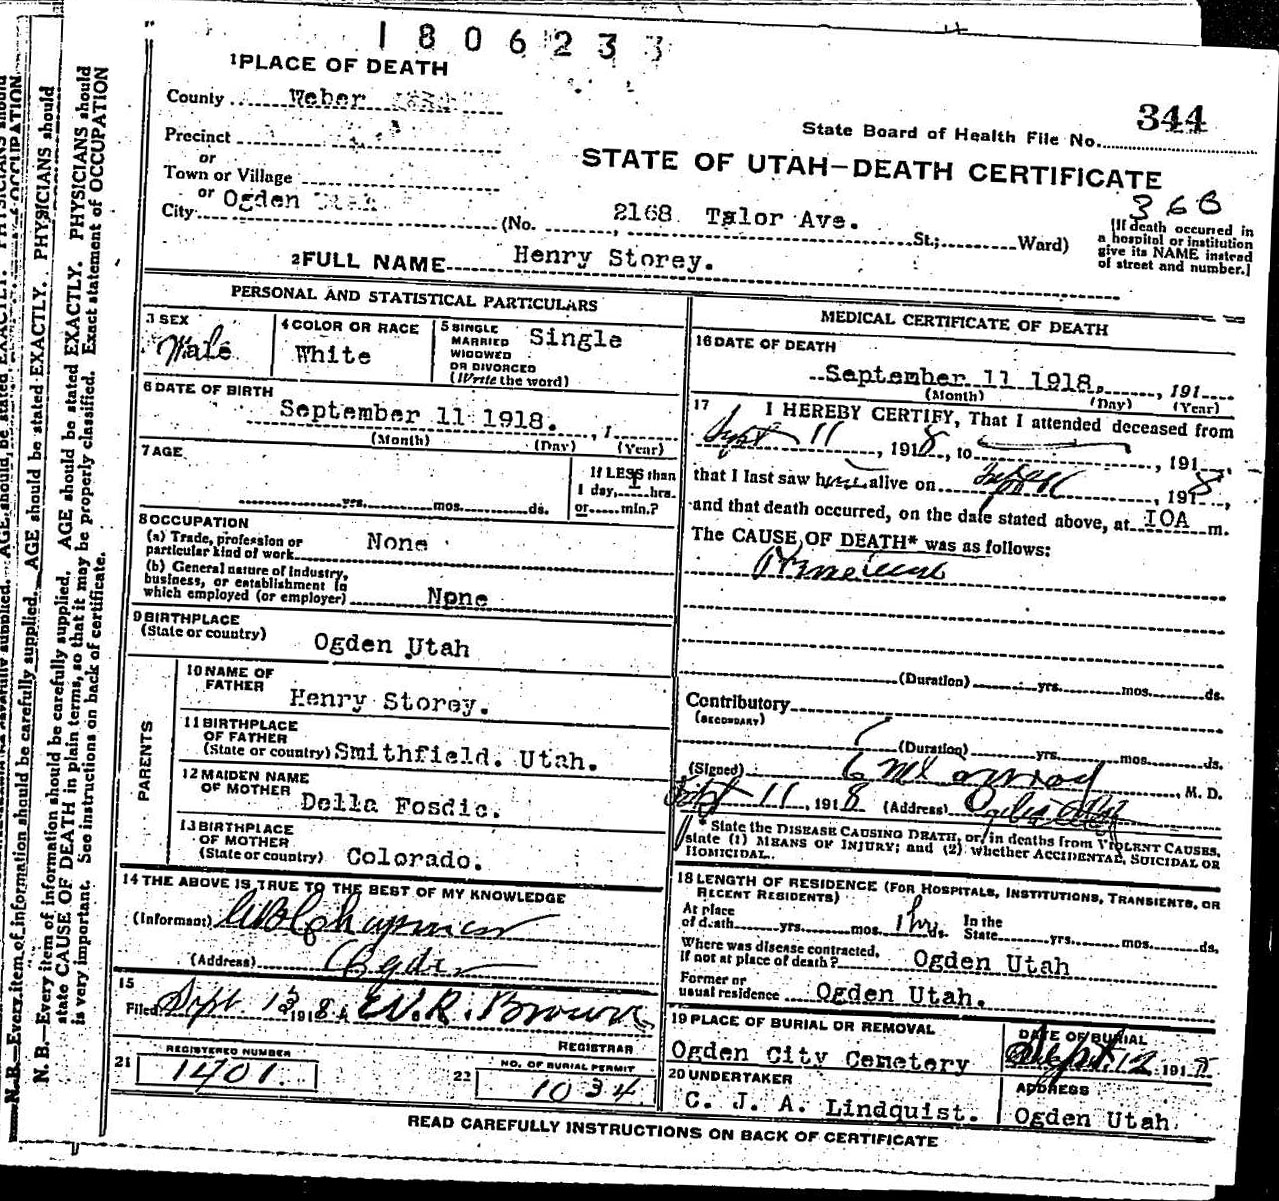 1806233
1 PLACE OF DEATH
County Weber
344
State Board of Health File No.
Precinct
or
Town or Village
STATE OF UTAH—DEATH CERTIFICATE
366
or Ogden Utah
City (No. 2168 Talor Ave. St.; Ward)
[If death occurred in
a hospital or institution
give its NAME instead
of street and number.]
2 FULL NAME Henry Storey.
PERSONAL AND STATISTICAL PARTICULARS
3 SEX
Male
4 COLOR OR RACE
White
5 SINGLE
MARRIED
WIDOWED
OR DIVORCED
(Write the word)
Single
6 DATE OF BIRTH
September 11 1918. , 1
(Month) (Day) (Year)
7 AGE
yrs. mos. ds.
If LESS than
1 day, hrs.
or min.?
8 OCCUPATION
(a) Trade, profession or
particular kind of work None
(b) General nature of industry,
business, or establishment in
which employed (or employer) None
9 BIRTHPLACE
(State or country) Ogden Utah
PARENTS
10 NAME OF
FATHER
Henry Storey.
11 BIRTHPLACE
OF FATHER
(State or country) Smithfield. Utah.
12 MAIDEN NAME
OF MOTHER
Della Fosdic.
13 BIRTHPLACE
OF MOTHER
(State or country) Colorado.
14 THE ABOVE IS TRUE TO THE BEST OF MY KNOWLEDGE
(Informant)
(Address) Ogden
15
Filed Sept 13 1918 W.R. Brown
REGISTRAR
21 REGISTERED NUMBER
1401.
22 NO. OF BURIAL PERMIT
1034
MEDICAL CERTIFICATE OF DEATH
16 DATE OF DEATH
September 11 1918. , 191
(Month) (Day) (Year)
17 I HEREBY CERTIFY, That I attended deceased from
Sept 11, 1918, to , 191
that I last saw h alive on , 1918,
and that death occurred, on the date stated above, at 10A m.
The CAUSE OF DEATH* was as follows:
(Duration) yrs. mos. ds.
Contributory
(SECONDARY)
(Duration) yrs. mos. ds.
(Signed) , M. D.
Sept 11, 1918 (Address) Ogden Utah
* State the DISEASE CAUSING DEATH, or, in deaths from VIOLENT CAUSES,
state (1) MEANS OF INJURY; and (2) whether ACCIDENTAL, SUICIDAL OR
HOMICIDAL.
18 LENGTH OF RESIDENCE (FOR HOSPITALS, INSTITUTIONS, TRANSIENTS, OR
RECENT RESIDENTS)
At place
of death yrs. mos. 1 hr. ds.
In the
State yrs. mos. ds.
Where was disease contracted,
if not at place of death? Ogden Utah
Former or
usual residence Ogden Utah.
19 PLACE OF BURIAL OR REMOVAL
Ogden City Cemetery
DATE OF BURIAL
Sept. 12 191
20 UNDERTAKER
C. J. A. Lindquist.
ADDRESS
Ogden Utah.
READ CAREFULLY INSTRUCTIONS ON BACK OF CERTIFICATE
N. B.—Every item of information should be carefully supplied. AGE should be stated EXACTLY. PHYSICIANS should
state CAUSE OF DEATH in plain terms, so that it may be properly classified. Exact statement of OCCUPATION
is very important. See instructions on back of certificate.